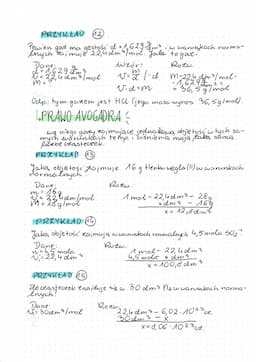 PRZYKŁAD 12
Pewien gaz ma gęstość d = 1,629 g/dm³ w warunkach norma-
lnych zajmuje 22,4 dm³/mol. Jaki to gaz?
Dane: Wzór: Rozw:
d = 1,629 g/dm³
V = 22,4 dm³/mol
M =
V = m/d /·d
V·d = M
M = 22,4 · 1,629
= 36,5 g/mol
Odp: tym gazem jest HCl (jego masa wynosi 36,5 g/mol).
PRAWO AVOGADRA
PRZYKŁAD 13
Jaką objętość zajmuje 16 g tlenku węgla (II) w warunkach
normalnych
Dane: Rozw:
m = 16 g
V = 22,4 dm³/mol
M =
1 mol - 22,4 dm³ - 28 g
x dm³ - 16 g
x = 12,8 dm³
PRZYKŁAD 14
Jaką objętość zajmują w warunkach normalnych 4,5 mola SO₂?
Dane: Rozw:
n = 4,5 mola
V = 22,4 dm³
1 mol - 22,4 dm³
4,5 mola - x dm³
x = 100,8 dm³
PRZYKŁAD
Ile cząsteczek znajduje się w 30 dm³ N₂ w warunkach norma-
lnych?
Dane: Rozw:
V = 30 dm³/mol
22,4 dm³ - 6,02 · 10²³ cz.
30 dm³ - x
x = 8,06 · 10²³ cz.